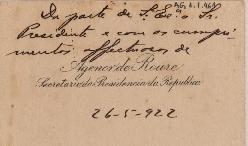 AG. 1.1.964
Da parte de S. Ex.ª o Sr.
Presidente e com os cumpri-
mentos affectuosos de
Agenor de Roure
Secretario da Presidencia da Republica
26-5-922